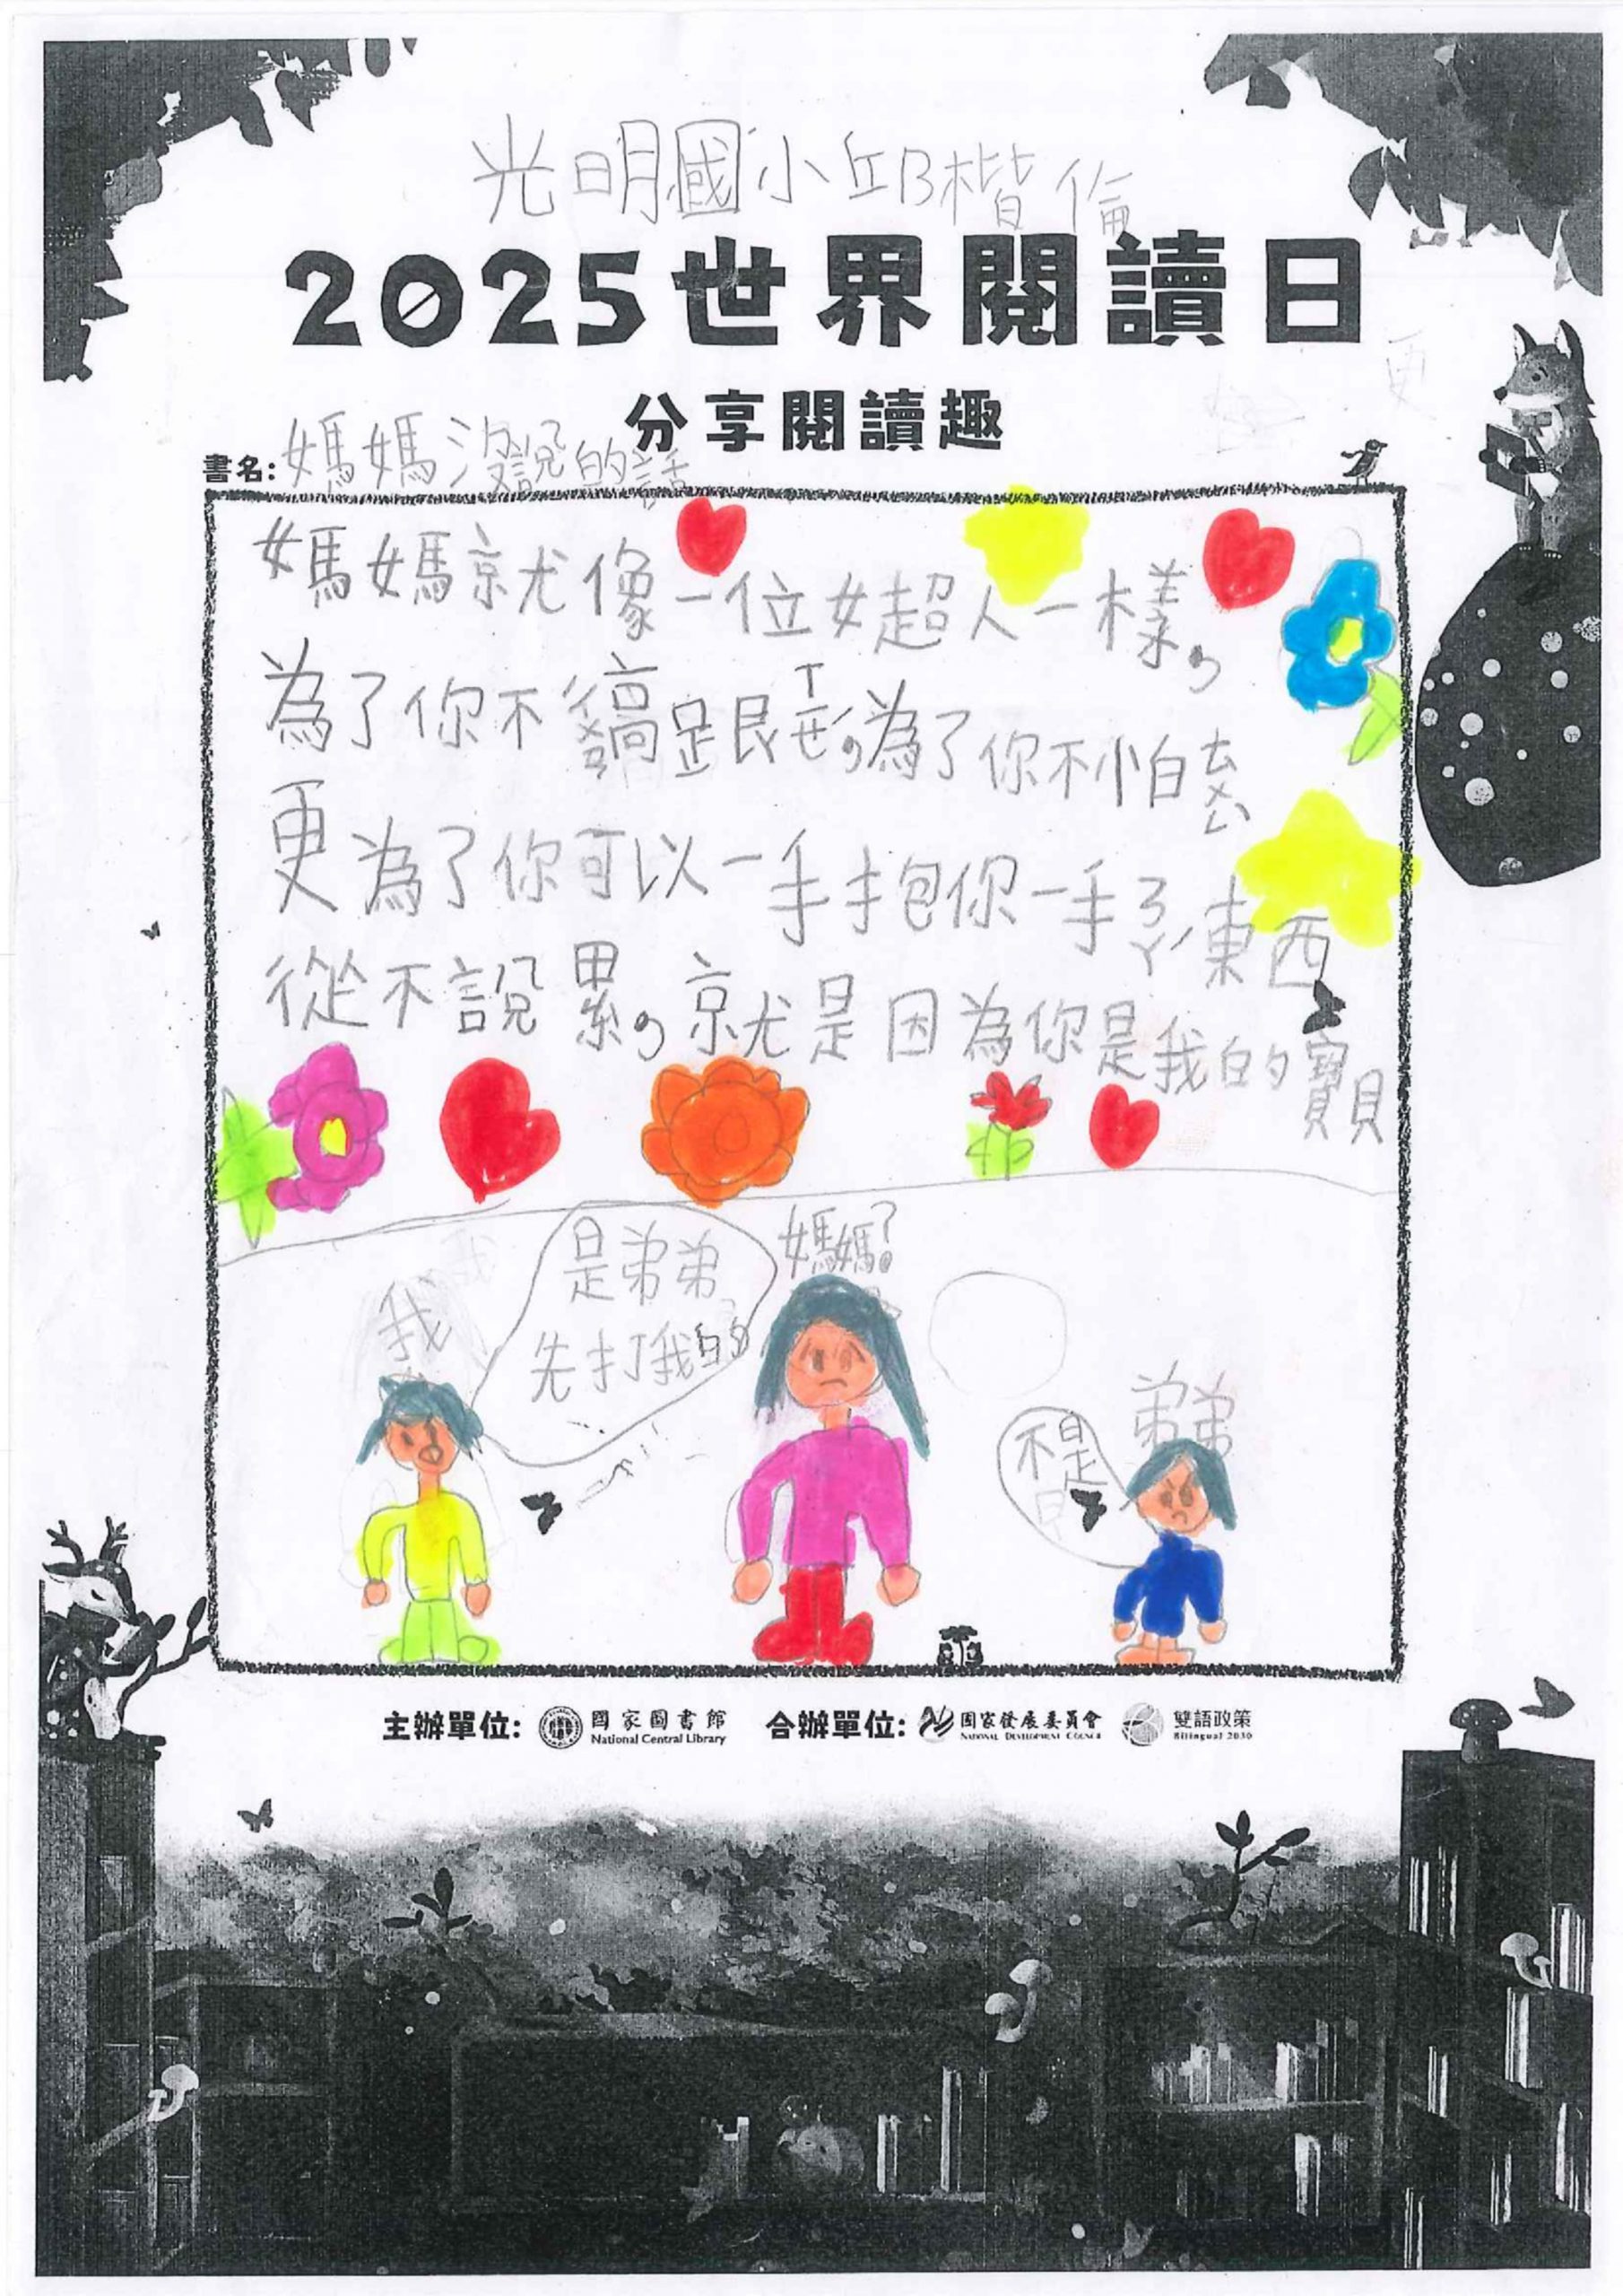 光明國小邱楷倫
2025世界閱讀日
分享閱讀趣
書名:媽媽沒說的話
媽媽就像一位女超人一樣,
為了你不
為了你不怕
更為了你可以一手抱你一手ㄋㄚˊ東西
從不說累,就是因為你是我的寶貝
我
是弟弟
先打我的
媽媽?
弟弟
不是
主辦單位: 國家圖書館 National Central Library 合辦單位: 國家發展委員會 National Development Council 雙語政策 Bilingual 2030